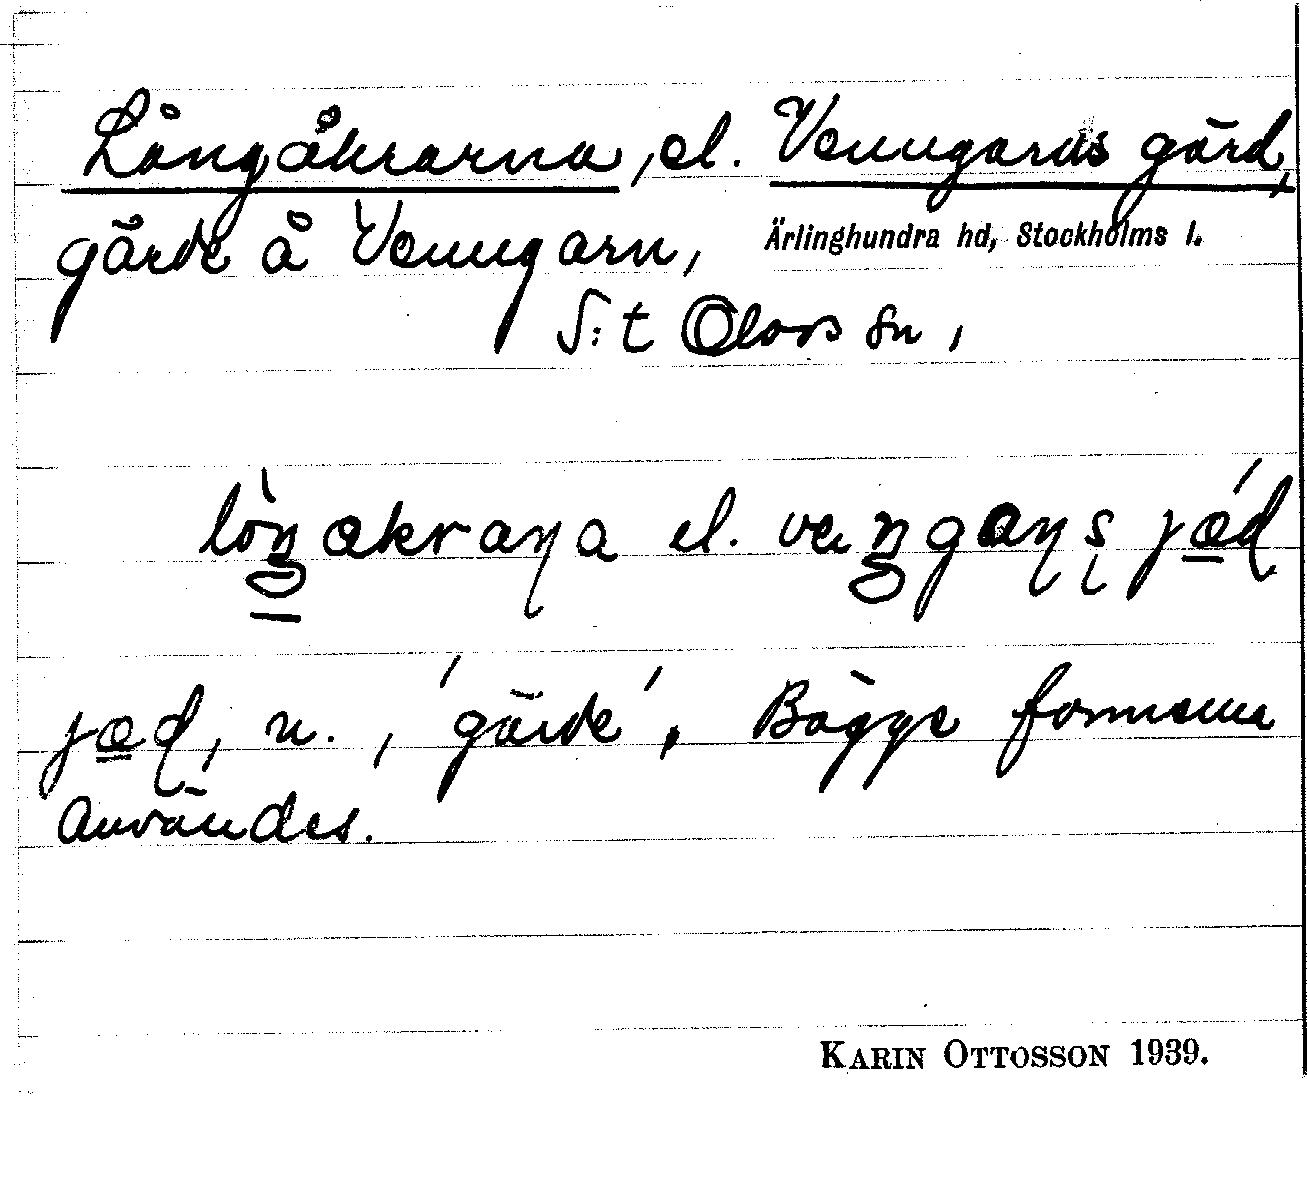 Långåkrarna, el. Venngarns gärd,
gärde å Venngarn, Ärlinghundra hd, Stockholms l.
S:t Olovs sn,
lòŋakraṇa el. veŋgaṇṣ jǽ̱ḍ
jæ̱ḍ, n., 'gärde'. Bägge formerna
användes.
KARIN OTTOSSON 1939.